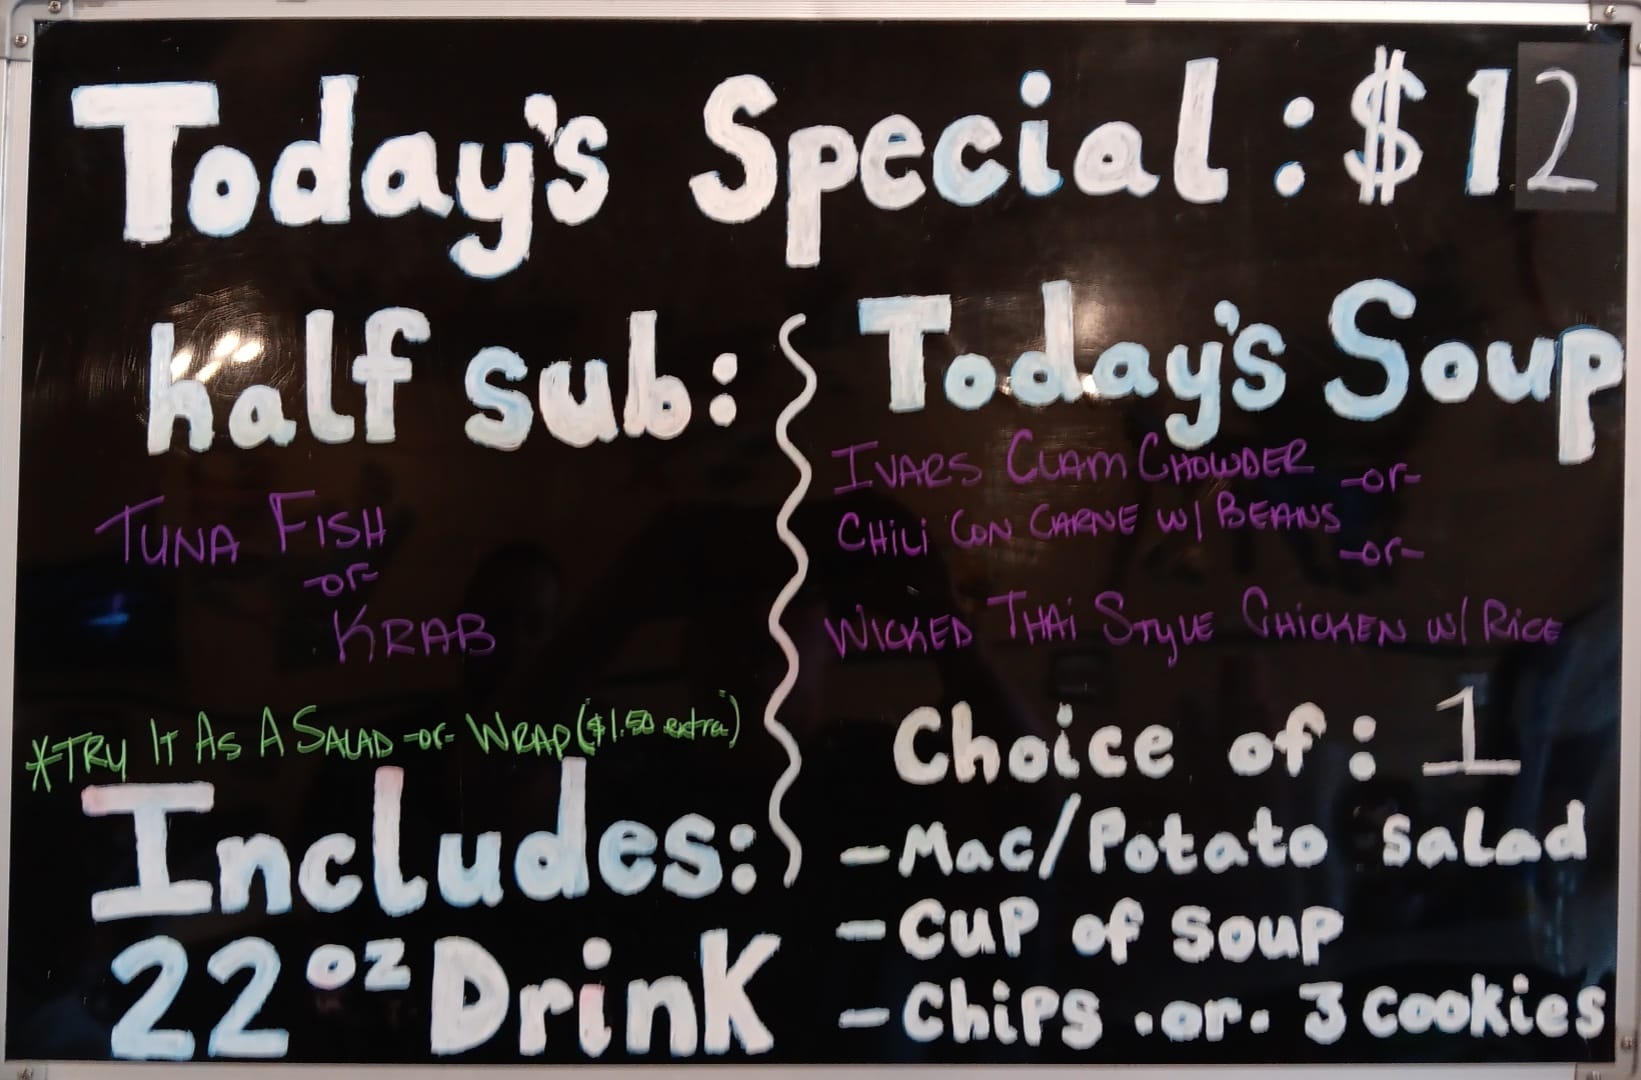 Today's Special: $12
half sub:
TUNA FISH
-or-
KRAB
*TRY IT AS A SALAD -or- WRAP ($1.50 extra)
Includes:
22oz Drink
Today's Soup
IVARS CLAM CHOWDER -or-
CHILI CON CARNE W/ BEANS
-or-
WICKED THAI STYLE CHICKEN W/ RICE
Choice of: 1
- Mac/Potato Salad
- Cup of Soup
- Chips .or. 3 Cookies